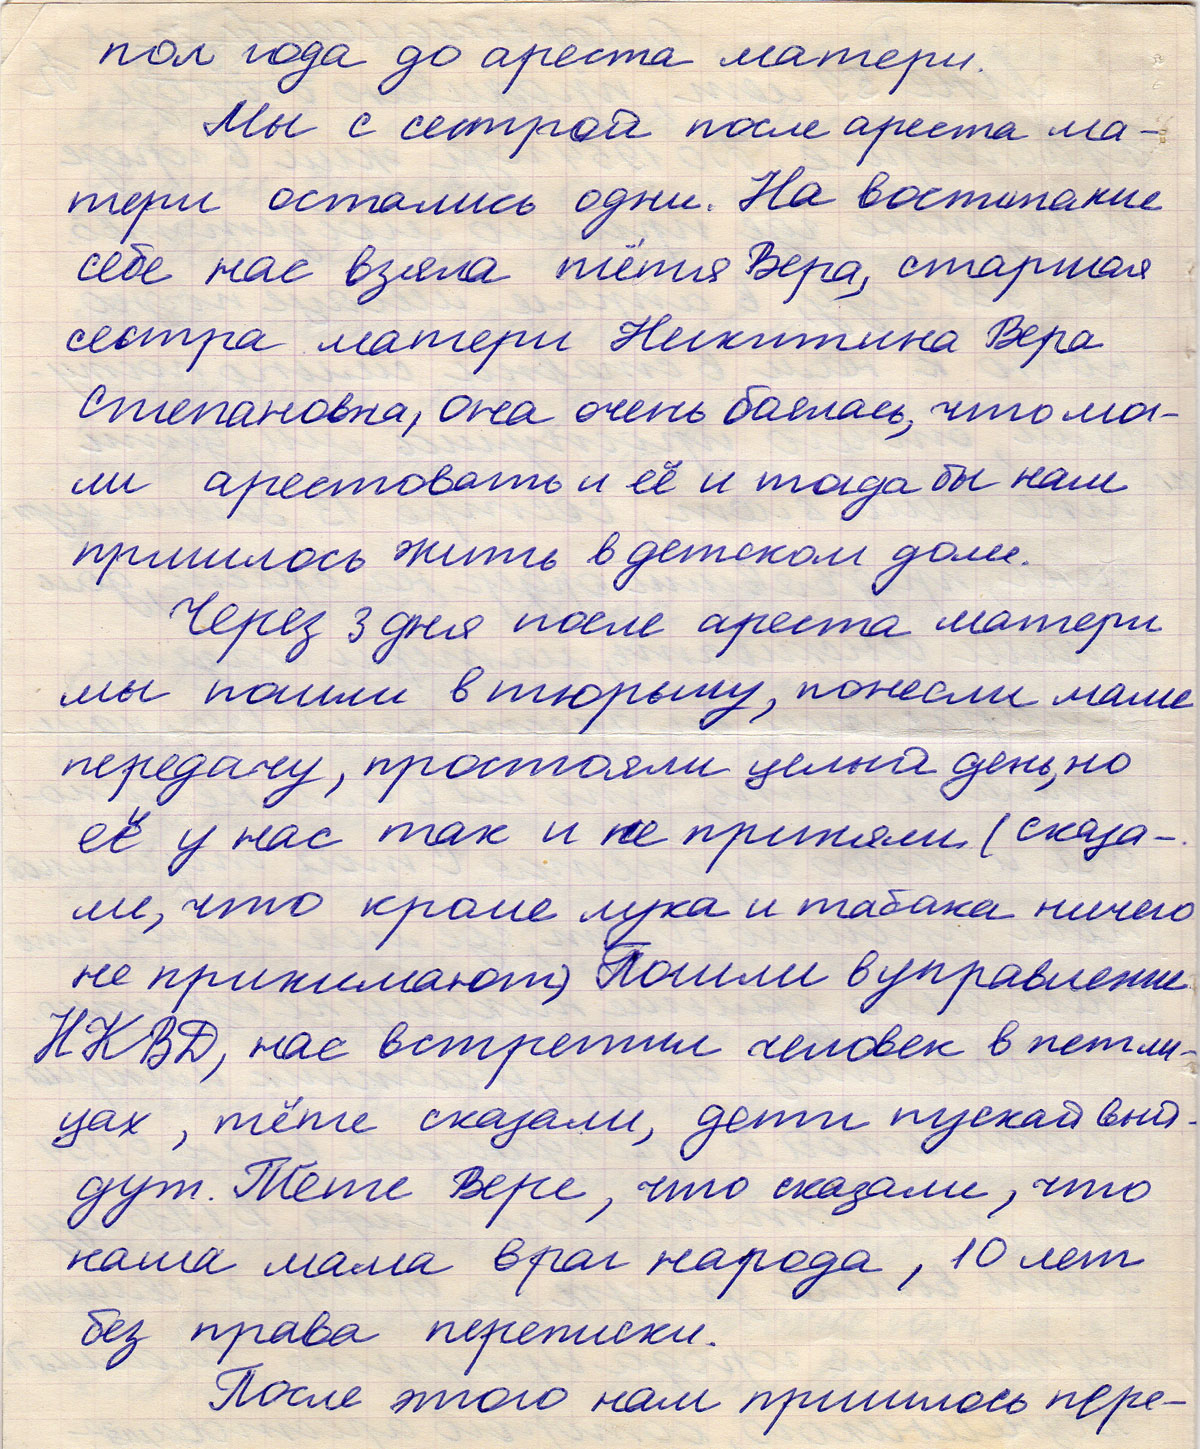 пол года до ареста матери.
Мы с сестрой после ареста ма-
тери остались одни. На воспитание
себе нас взяла тётя Вера, старшая
сестра матери Никитина Вера
Степановна, она очень боялась, что мог-
ли арестовать и её и тогда бы нам
пришлось жить в детском доме.
Через 3 дня после ареста матери
мы пошли в тюрьму, понесли маме
передачу, простояли целый день, но
её у нас так и не приняли (сказа-
ли, что кроме лука и табака ничего
не принимают) Пошли в управление
НКВД, нас встретил человек в петли-
цах, тёте сказали, дети пускай вый-
дут. Тёте Вере, что сказали, что
наша мама враг народа, 10 лет
без права переписки.
После этого нам пришлось пере-